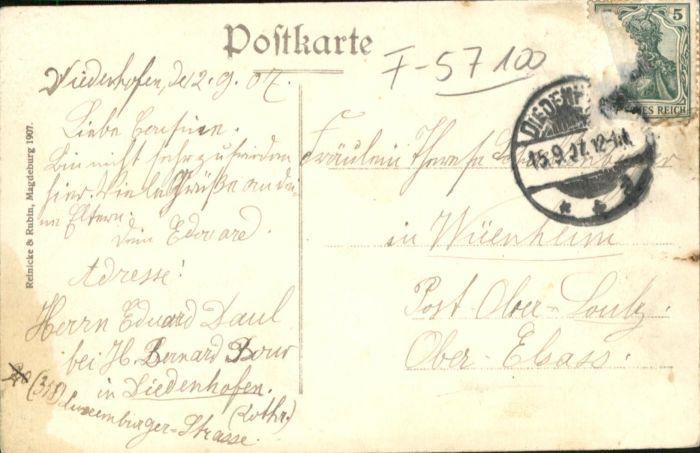 Postkarte
F-57100
Diedenhofen, de 2. 9. 07.
Liebe Cousine.
Bin nicht sehr zufrieden
hier. Viele Grüße an dei-
ne Eltern.
Dein Edouard.
Adresse!
Herrn Eduard Daul
bei H. Bernard Bour
in Diedenhofen.
(Lothr.)
Luxemburger-Strasse.
Reinicke & Rubin, Magdeburg 1907.
5 5
ES REICH
DIEDENH
15.9.07. 12-1N
Fräulein Therese
in Wüenheim
Post Ober-Sultz
Ober-Elsass.